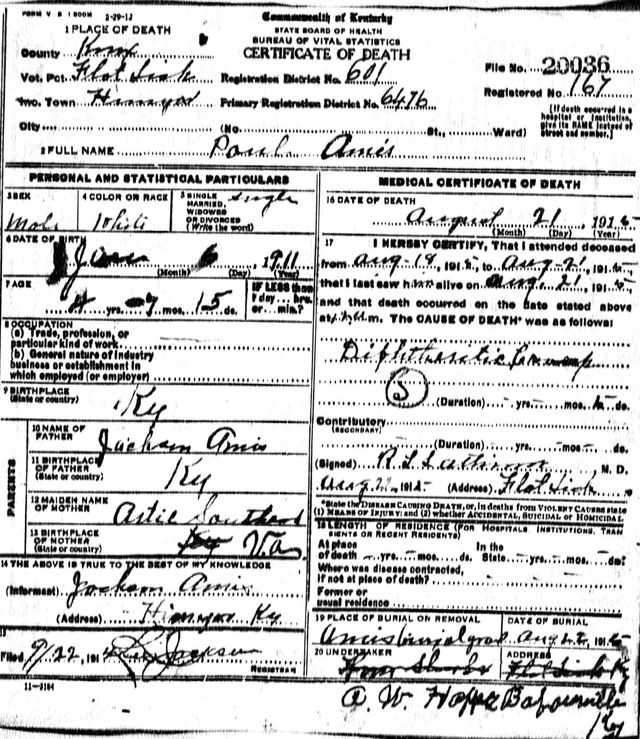 FORM V. S. 1 500M 2-29-12
Commonwealth of Kentucky
STATE BOARD OF HEALTH
BUREAU OF VITAL STATISTICS
CERTIFICATE OF DEATH
1 PLACE OF DEATH
County Knox
Vot. Pct. Flat Lick Registration District No. 601
File No. 20036
Inc. Town Himyar Primary Registration District No. 6476
Registered No. 167
[If death occurred in a hospital or institution, give its NAME instead of street and number.]
City (No. St., Ward)
2 FULL NAME Paul Amis
PERSONAL AND STATISTICAL PARTICULARS
3 SEX Male
4 COLOR OR RACE White
5 SINGLE, MARRIED, WIDOWED OR DIVORCED (Write the word) Single
6 DATE OF BIRTH Jan 6 1911
(Month) (Day) (Year)
7 AGE 4 yrs. 7 mos. 15 ds.
IF LESS than 1 day... hrs. or... min.?
8 OCCUPATION
(a) Trade, profession, or particular kind of work
(b) General nature of industry business or establishment in which employed (or employer)
9 BIRTHPLACE (State or country) Ky
PARENTS
10 NAME OF FATHER Jackson Amis
11 BIRTHPLACE OF FATHER (State or country) Ky
12 MAIDEN NAME OF MOTHER Artie Southard
13 BIRTHPLACE OF MOTHER (State or country) Ky Va
14 THE ABOVE IS TRUE TO THE BEST OF MY KNOWLEDGE
(Informant) Jackson Amis
(Address) Himyar Ky
15
Filed 9/22, 191 Jackson
REGISTRAR
11-3184
MEDICAL CERTIFICATE OF DEATH
16 DATE OF DEATH
August 21, 1915
(Month) (Day) (Year)
17 I HEREBY CERTIFY, That I attended deceased
from Aug 18, 1915, to Aug 21, 1915,
that I last saw him alive on Aug, 21, 1915
and that death occurred on the date stated above
at M. The CAUSE OF DEATH* was as follows:
Diphtheritic Croup
(Duration) yrs. mos. ds.
Contributory (SECONDARY)
(Duration) yrs. mos. ds.
(Signed) M. D.
Aug 22, 1915 (Address) Flat Lick
*State the DISEASE CAUSING DEATH, or, in deaths from VIOLENT CAUSES state (1) MEANS OF INJURY; and (2) whether ACCIDENTAL, SUICIDAL or HOMICIDAL.
18 LENGTH OF RESIDENCE (FOR HOSPITALS, INSTITUTIONS, TRANSIENTS OR RECENT RESIDENTS)
At place of death yrs. mos. ds. In the State yrs. mos. ds.
Where was disease contracted, if not at place of death?
Former or usual residence
19 PLACE OF BURIAL OR REMOVAL Amis burial grad
DATE OF BURIAL Aug 22, 1915
20 UNDERTAKER
ADDRESS Flat Lick Ky
A. W. Hopper Barbourville
Ky